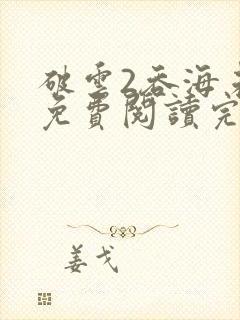 破雲2吞海
免費閱讀完
姜戈